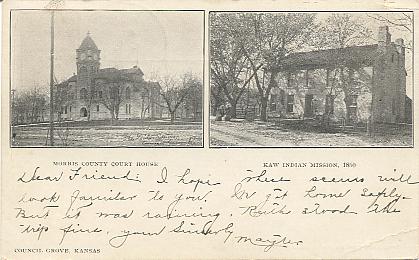 MORRIS COUNTY COURT HOUSE
KAW INDIAN MISSION, 1850
Dear Friend: I hope these scenes will
look familiar to you. We got home safely.
But it was raining. Ruth stood the
trip fine. your Sincerly
COUNCIL GROVE, KANSAS